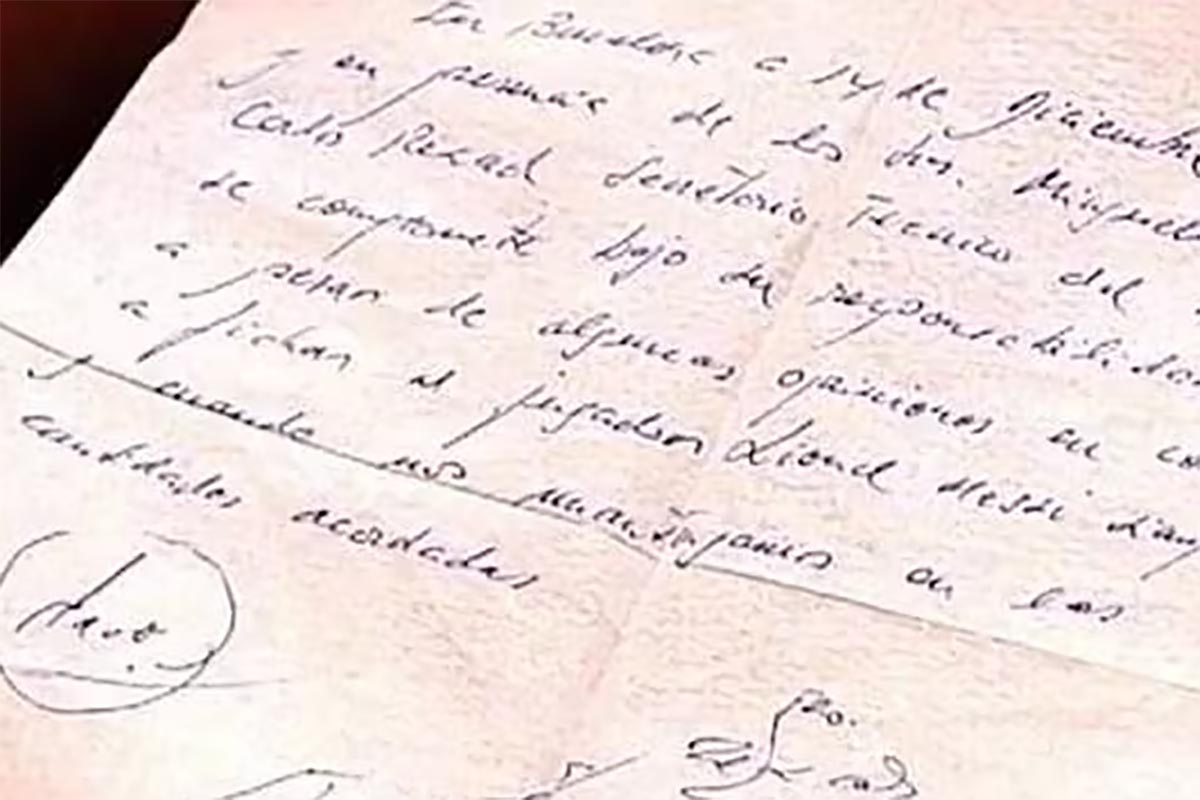 En Barcelona a 14 de Diciembre
y en presencia de los Srs. Minguella
Carlos Rexach Secretario Tecnico del
se compromete bajo su responsabilidad
a pesar de algunas opiniones en co
a fichar al jugador Lionel Messi
y cuando nos mantengamos en las
cantidades acordadas